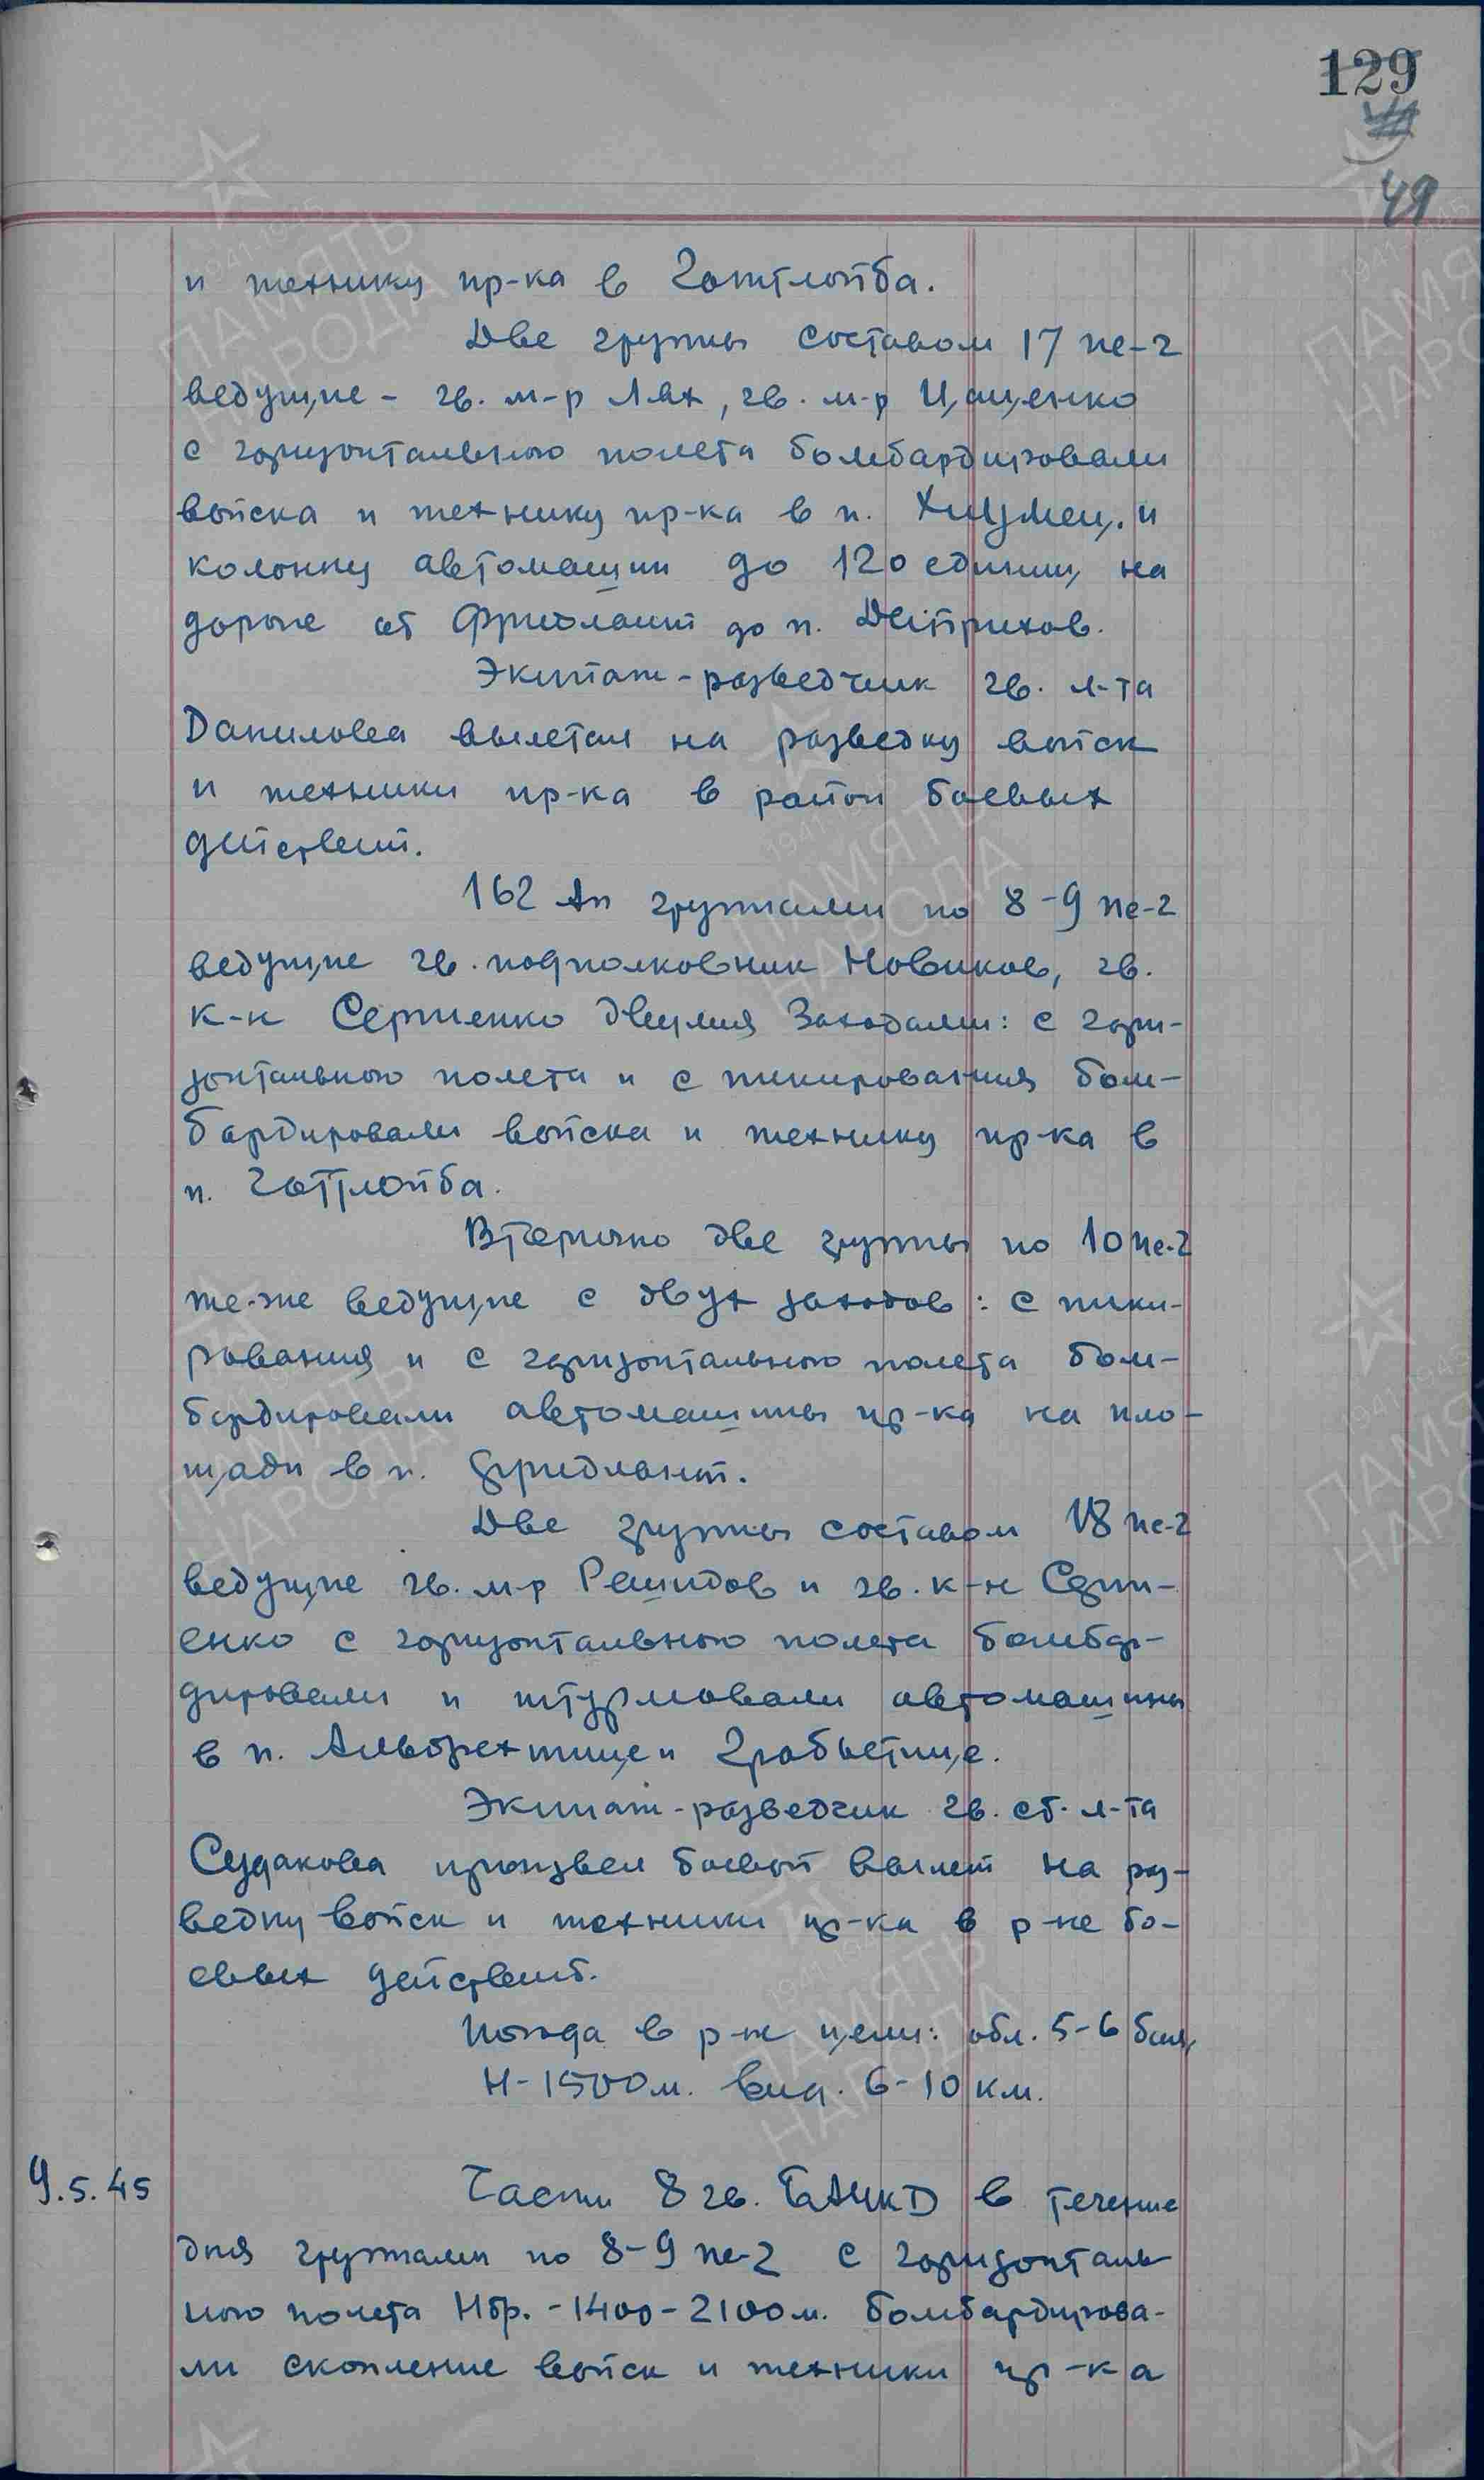 129
49
и технику пр-ка в Готтлойба.
Две группы составом 17 Пе-2
ведущие - гв. м-р Лях, гв. м-р Цащенко
с горизонтального полета бомбардировали
войска и технику пр-ка в п. и
колонну автомашин до 120 единиц на
дороге от Фридлант до п. Дитрихов.
Экипаж-разведчик гв. л-та
Данилова вылетал на разведку войск
и техники пр-ка в район боевых
действий.
162 Ап группами по 8-9 Пе-2
ведущие гв. подполковник Новиков, гв.
к-н Сергиенко двумя заходами: с гори-
зонтального полета и с пикирования бом-
бардировали войска и технику пр-ка в
п. Готтлойба.
Вторично две группы по 10 Пе-2
те-же ведущие с двух заходов: с пики-
рования и с горизонтального полета бом-
бардировали автомашины пр-ка на пло-
щади в п. Фридлант.
Две группы составом 18 Пе-2
ведущие гв. м-р Решидов и гв. к-н Серги-
енко с горизонтального полета бомбар-
дировали и штурмовали автомашины
в п. Альбрехтице и Грабьетице.
Экипаж-разведчик гв. ст. л-та
Судакова произвел боевой вылет на раз-
ведку войск и техники пр-ка в р-не бо-
евых действий.
Погода в р-не цели: обл. 5-6 бал,
Н-1500м. вид. 6-10 км.
9.5.45
Части 8 гв. БАПкД в течение
дня группами по 8-9 Пе-2 с горизонталь
ного полета Нбр. -1400-2100м. бомбардирова-
ли скопление войск и техники пр-ка
ПАМЯТЬ
НАРОДА
1941-1945